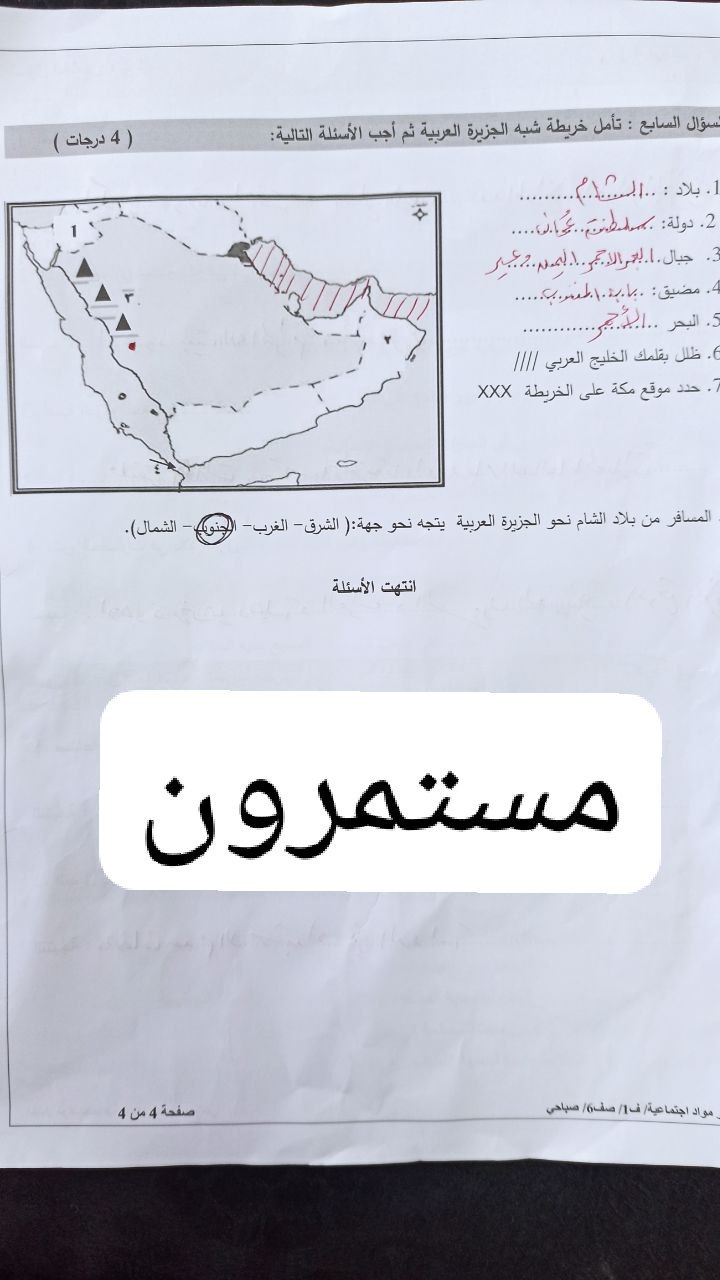 السؤال السابع : تأمل خريطة شبه الجزيرة العربية ثم أجب الأسئلة التالية: ( 4 درجات )
1. بلاد : الشام
2. دولة: سلطنة عُمان
3. جبال البحر الأحمر اليمن وعسير
4. مضيق: باب المندب
5. البحر الأحمر
6. ظلل بقلمك الخليج العربي ////
7. حدد موقع مكة على الخريطة XXX
1
٣
٢
٥
٤
المسافر من بلاد الشام نحو الجزيرة العربية يتجه نحو جهة:( الشرق– الغرب– الجنوب– الشمال).
انتهت الأسئلة
مستمرون
مواد اجتماعية/ ف1/ صف6/ صباحي
صفحة 4 من 4